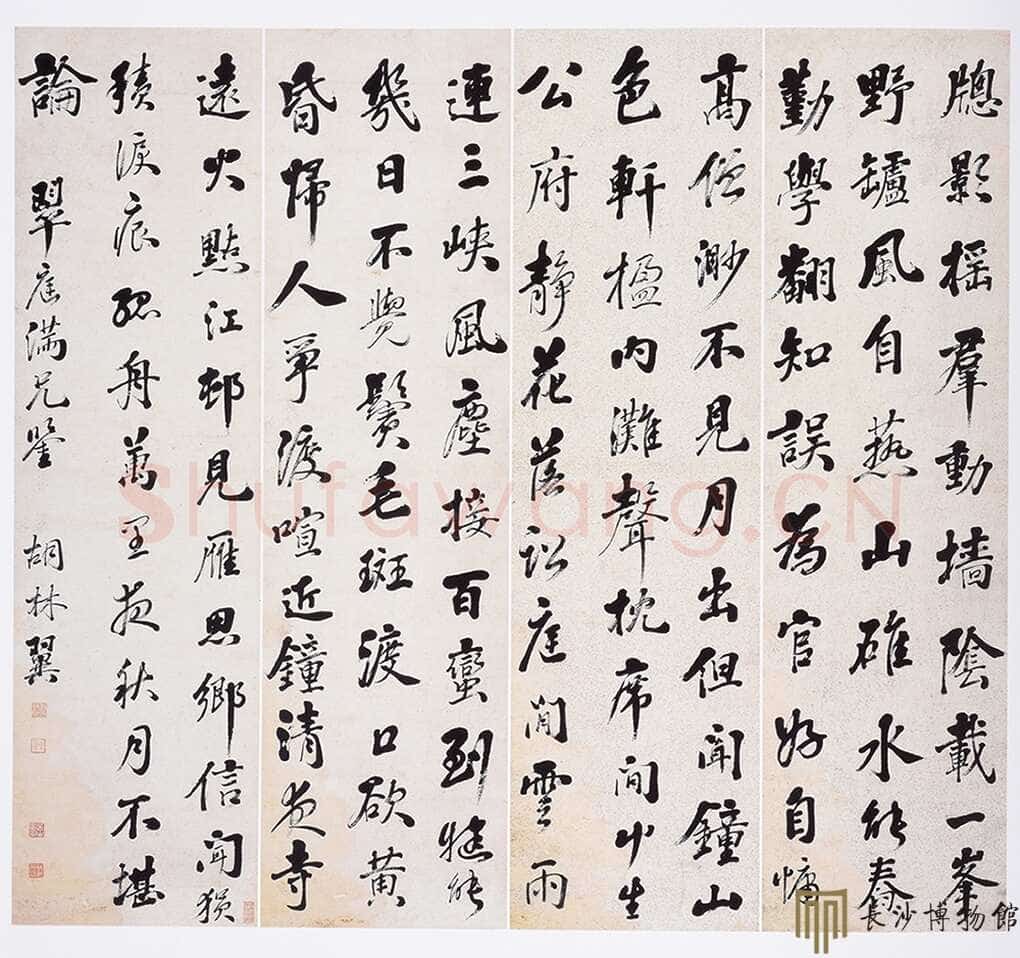 牕影摇羣動墻陰載一峯
野鑪風自爇山碓水能舂
勤學翻知誤為官好自慵
高僧渺不見月出但聞鐘山
色軒楹内灘聲枕席間艸生
公府静花落訟庭閒雲雨
連三峡風塵接百蠻到犍能
幾日不覺鬢毛斑渡口欲黄
昏歸人爭渡喧近鐘清夜寺
遠火點江邨見雁思鄉信聞猨
積淚痕孤舟萬里夜秋月不堪
論
翠滿兄鑒 胡林翼
Shufawang.CN
長沙博物館